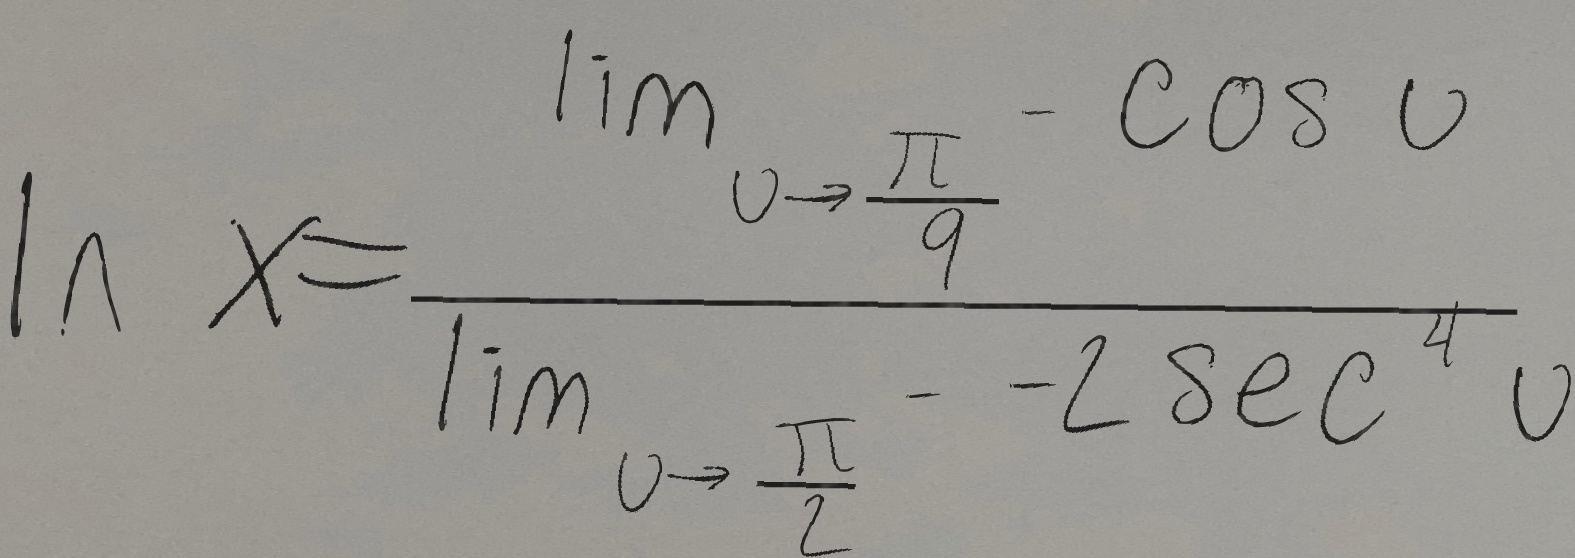 \ln x = \frac{\lim_{u \to \frac{\pi}{9}} - \cos u}{\lim_{u \to \frac{\pi}{2}^-} -2 \sec^4 u}